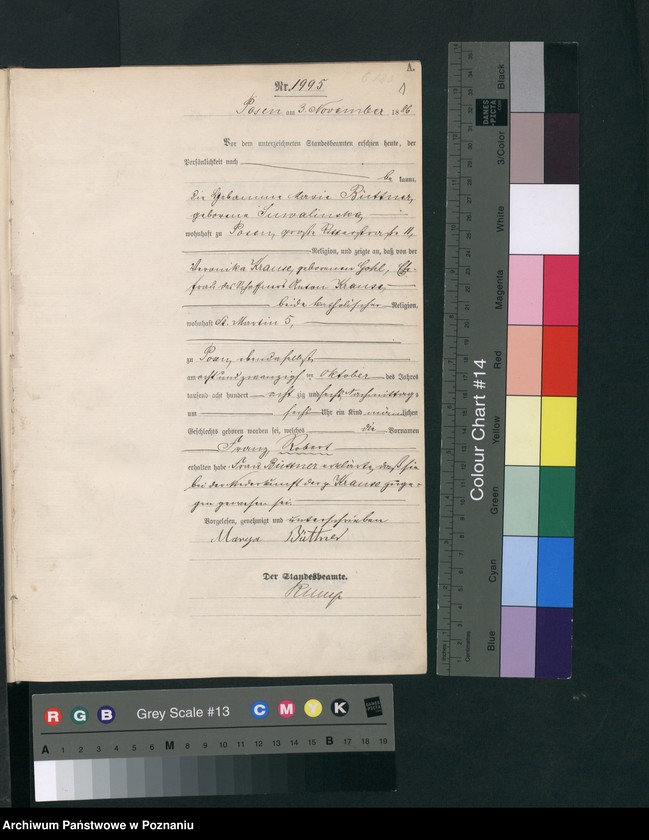 A.
Nr. 1995
Posen, am 3. November 1886
Vor dem unterzeichneten Standesbeamten erschien heute, der
Persönlichkeit nach
be kannt,
die Hebamme Marie Büttner,
geborene Suwalinska,
wohnhaft zu Posen, große Ritterstrasse 11,
Religion, und zeigte an, daß von der
Veronika Krause, geborenen Gohl, Ehe-
frau des Schaffners Anton Krause,
beide katholischer Religion,
wohnhaft St. Martin 5,
zu Posen, ebendaselbst,
am acht und zwanzigsten Oktober des Jahres
tausend acht hundert acht zig und sechs, Nachmittags
um sechs Uhr ein Kind männlichen
Geschlechts geboren worden sei, welches die Vornamen
Franz Robert
erhalten habe. Frau Büttner erklärte, daß sie
bei der Niederkunft der p. Krause zuge-
gen gewesen sei.
Vorgelesen, genehmigt und unterschrieben
Marya Büttner
Der Standesbeamte.
Colour Chart #14
Black
3/Color
White
Magenta
Red
Yellow
Green
Cyan
Blue
DANES
PICTA
Inches
Centimetres
R G B Grey Scale #13 C M Y K
A 1 2 3 4 5 6 M 8 9 10 11 12 13 14 15 B 17 18 19
Archiwum Państwowe w Poznaniu